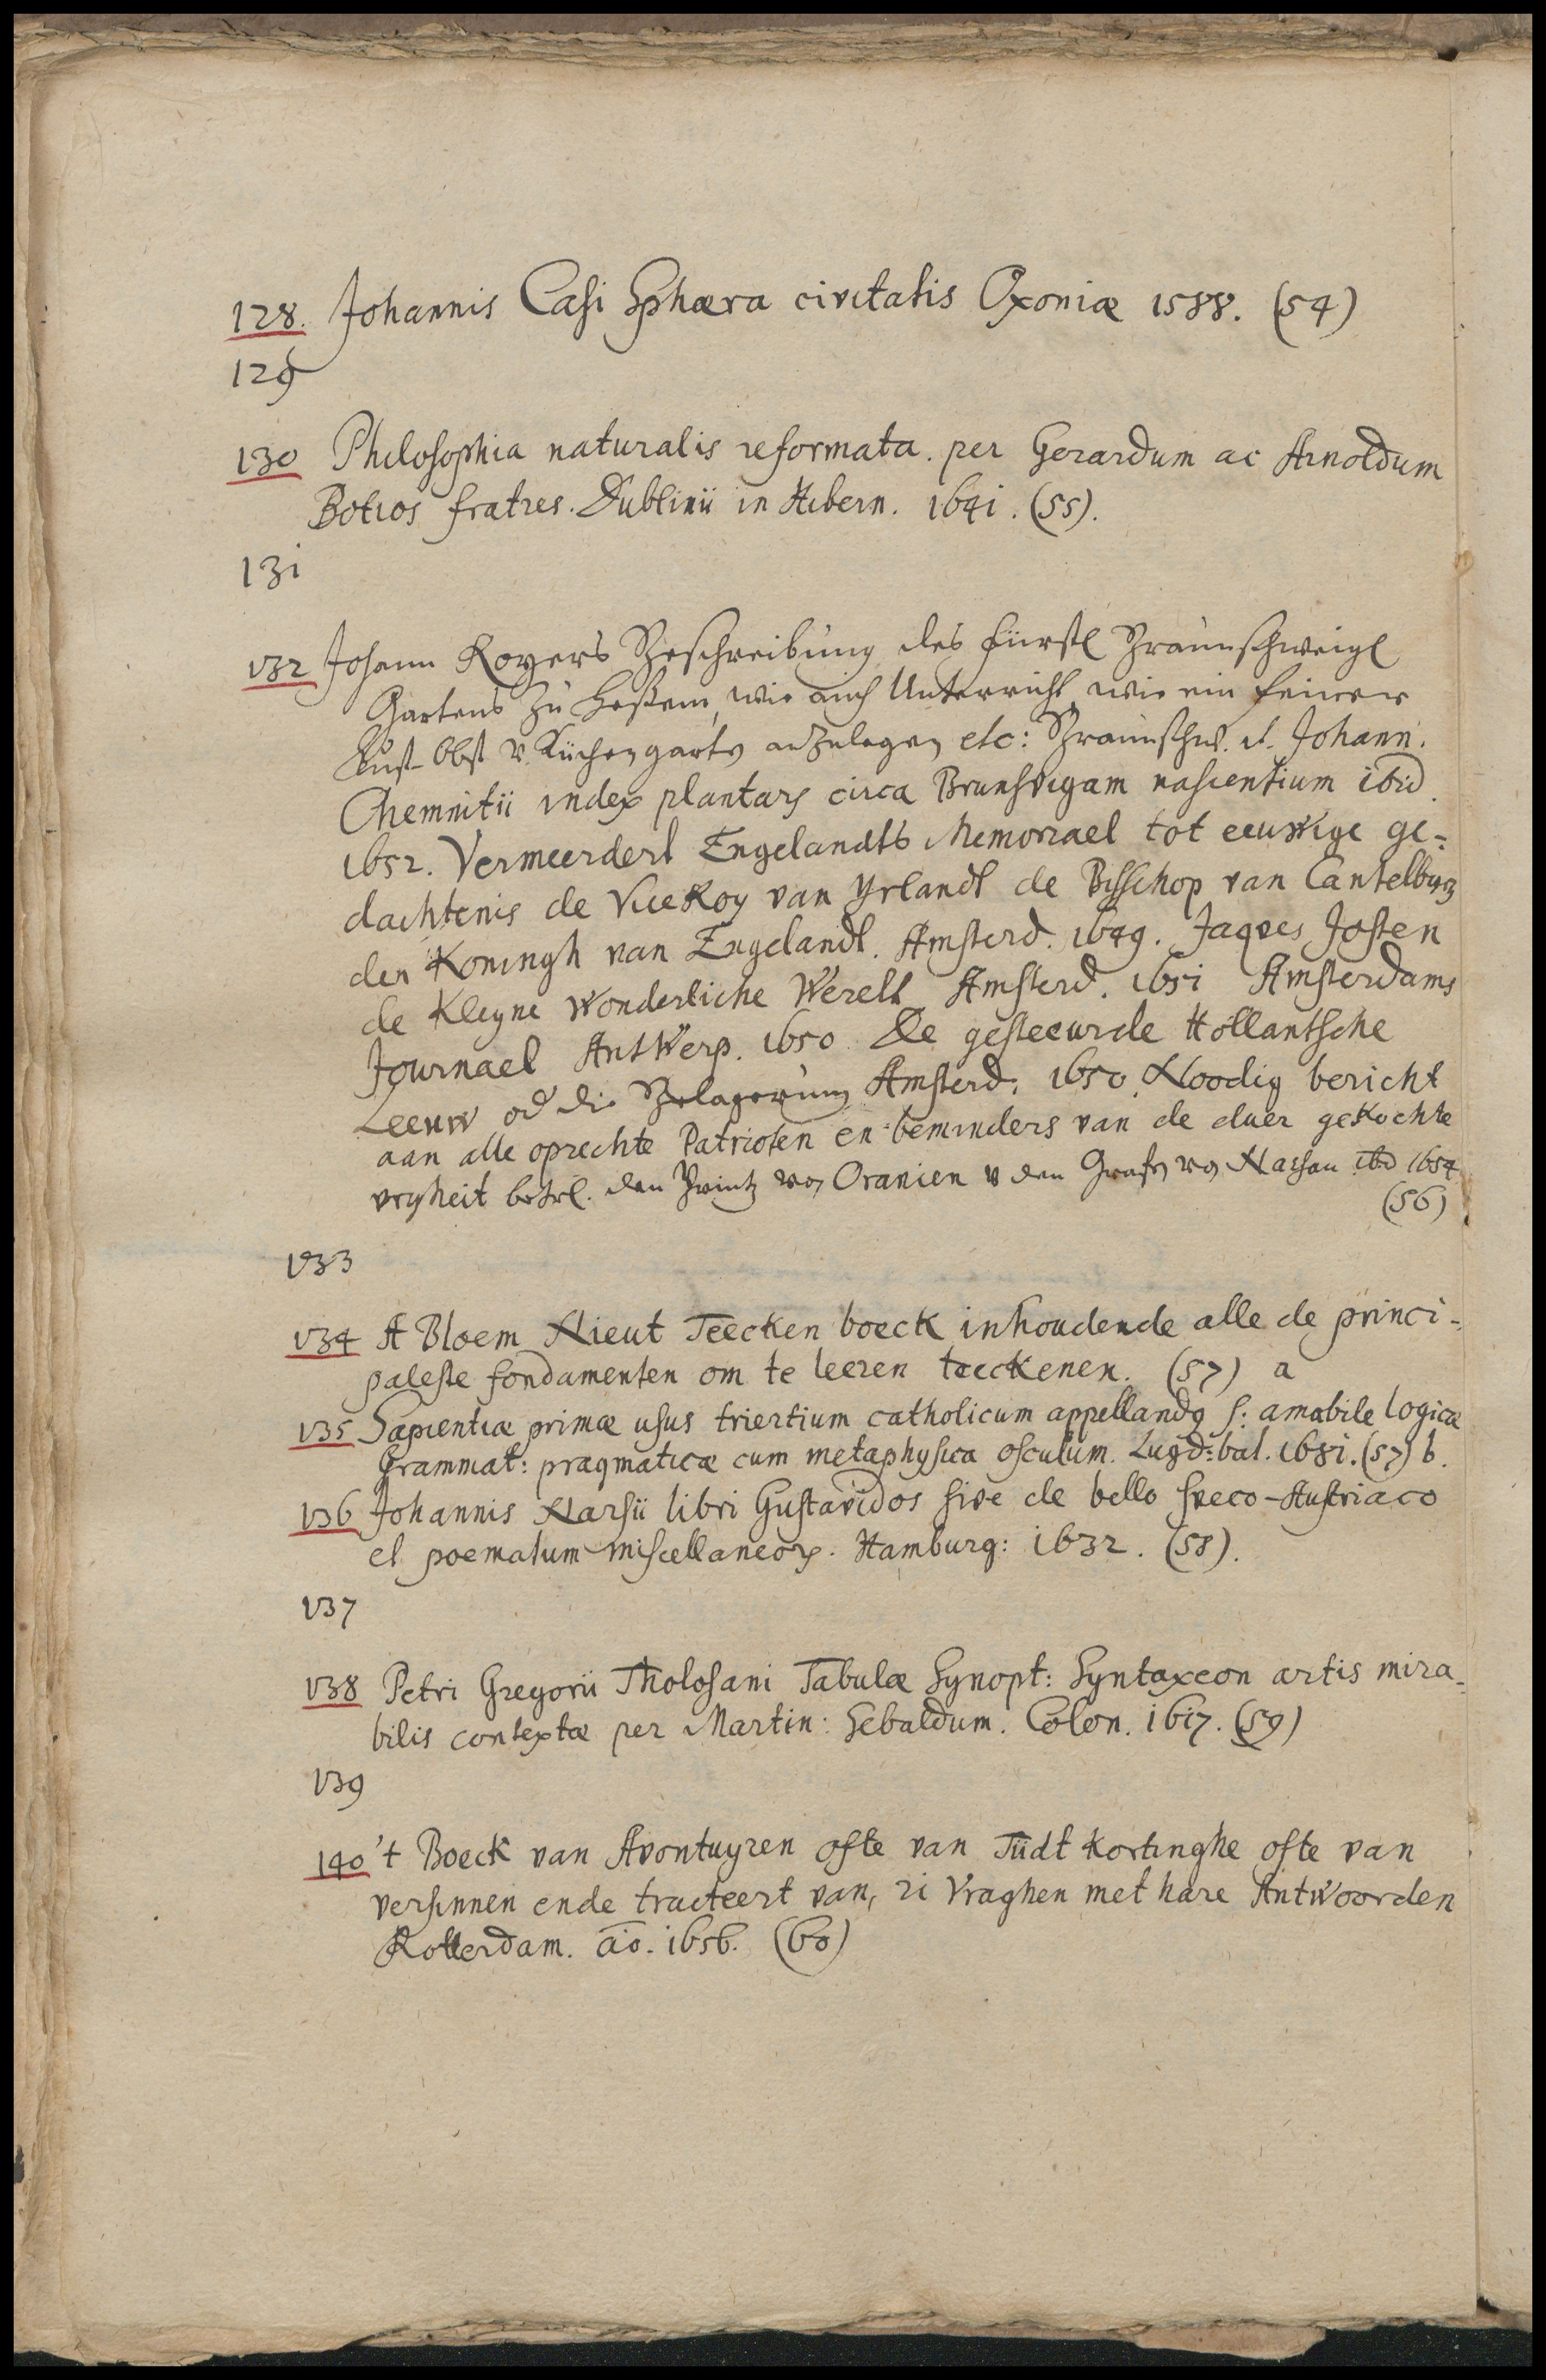 128. Johannis Casi Sphæra civitatis Oxoniæ 1588. (54)
129
130 Philosophia naturalis reformata. per Gerardum ac Arnoldum
Botios fratres. Dublinii in Hibern. 1641. (55).
131
132 Johann Royers Beschreibung des fürstl Braunschweigl
Gartens zu Heßem, wie auch Unterricht wie ein feiner
Lust- Obst v. Küchengarten anzulegen etc: Braunschw. it. Johann.
Chemnitii index plantarum circa Brunsvigam nascentium ibid.
1652. Vermeerdert Engelandts Memoriael tot eeuwige ge-
dachtenis de ViceRoy van Yrlandt de Bisschop van Cantelburg
den Koningh van Engelandt. Amsterd. 1649. Jaques Josten
de Kleyne Wonderliche Werelt Amsterd. 1651 Amsterdams
Journael AntWerp. 1650 De gesteeurde Hollantsche
Leeuw od die Belagerung Amsterd. 1650. Noodig bericht
aan alle oprechte Patrioten en beminders van de duer gekochte
vryheit betrl. den Printz von Oranien v den Grafen von Nassau ibid 1654
(56)
133
134 A Bloem Nieut Teecken boeck inhoudende alle de princi-
paleste fondamenten om te leeren teeckenen. (57) a
135 Sapientiæ primæ usus triertium catholicum appellandus s: amabile logicæ
Grammat: pragmaticæ cum metaphysica osculum. Lugd: bat. 1681. (57) b.
136 Johannis Narsii libri Gustavidos sive de bello Sveco-Austriaco
et poematum miscellaneorum. Hamburg: 1632. (58).
137
138 Petri Gregorii Tholosani Tabulæ Synopt: Syntaxeon artis mira-
bilis contextæ per Martin: Sebaldum. Colon. 1617. (59)
139
140 't Boeck van Avontuyren ofte van Tiidt kortinghe ofte van
versinnen ende tracteert van, 21 Vraghen met hare Antwoorden
Rotterdam. ao. 1656. (60)